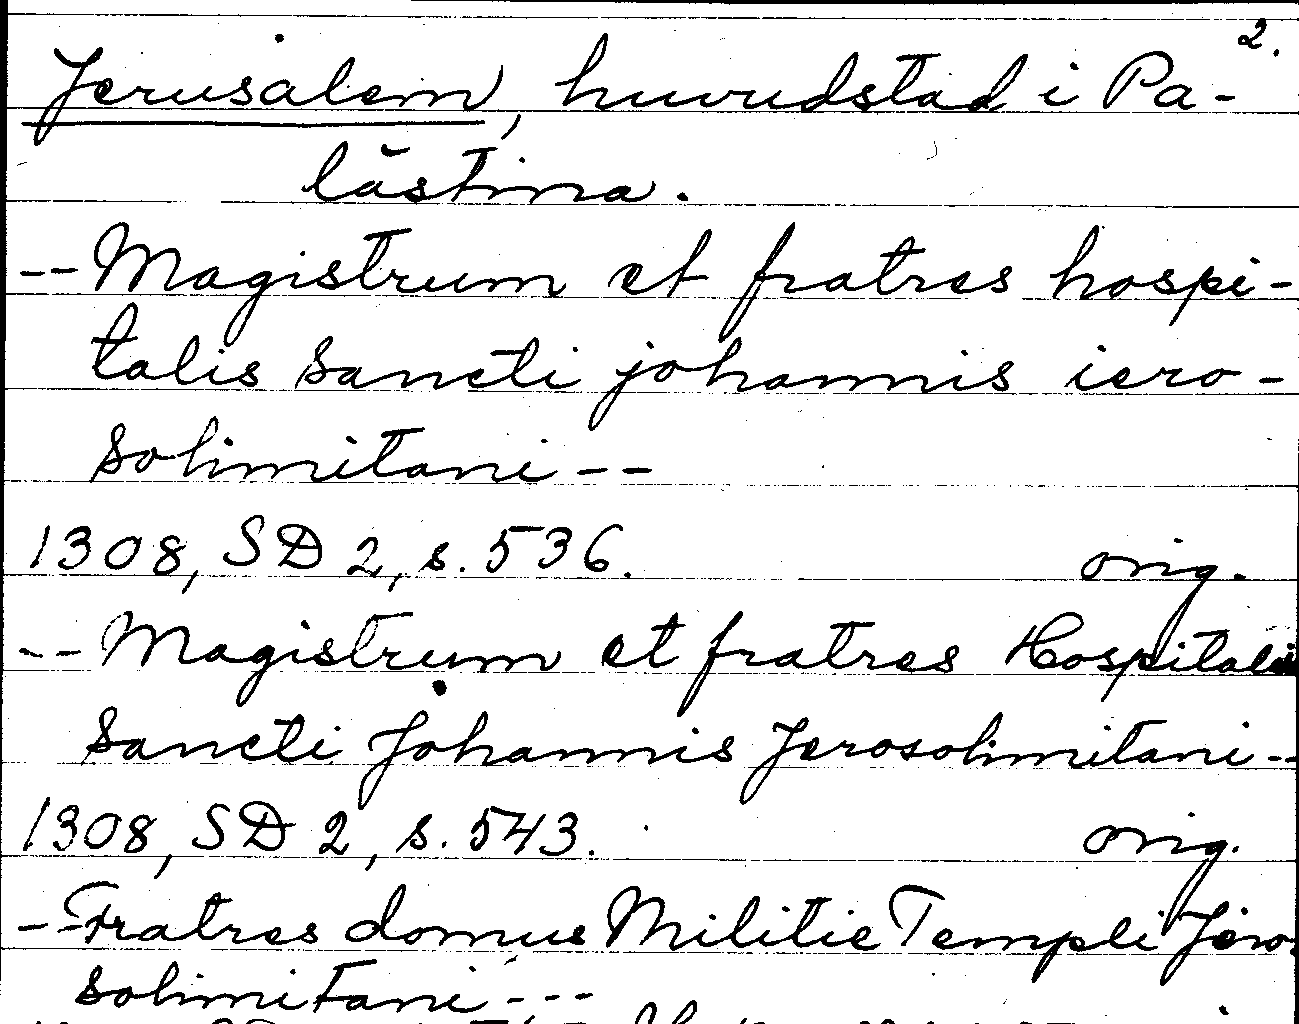 2.
Jerusalem, huvudstad i Pa-
lästina.
-- Magistrum et fratres hospi-
talis sancti johannis iero-
solimitani --
1308, SD 2, s. 536. orig.
-- Magistrum et fratres Hospitalis
sancti Johannis Jerosolimitani --
1308, SD 2, s. 543. orig.
-- Fratres domus Militie Templi Jero-
solimitani ---